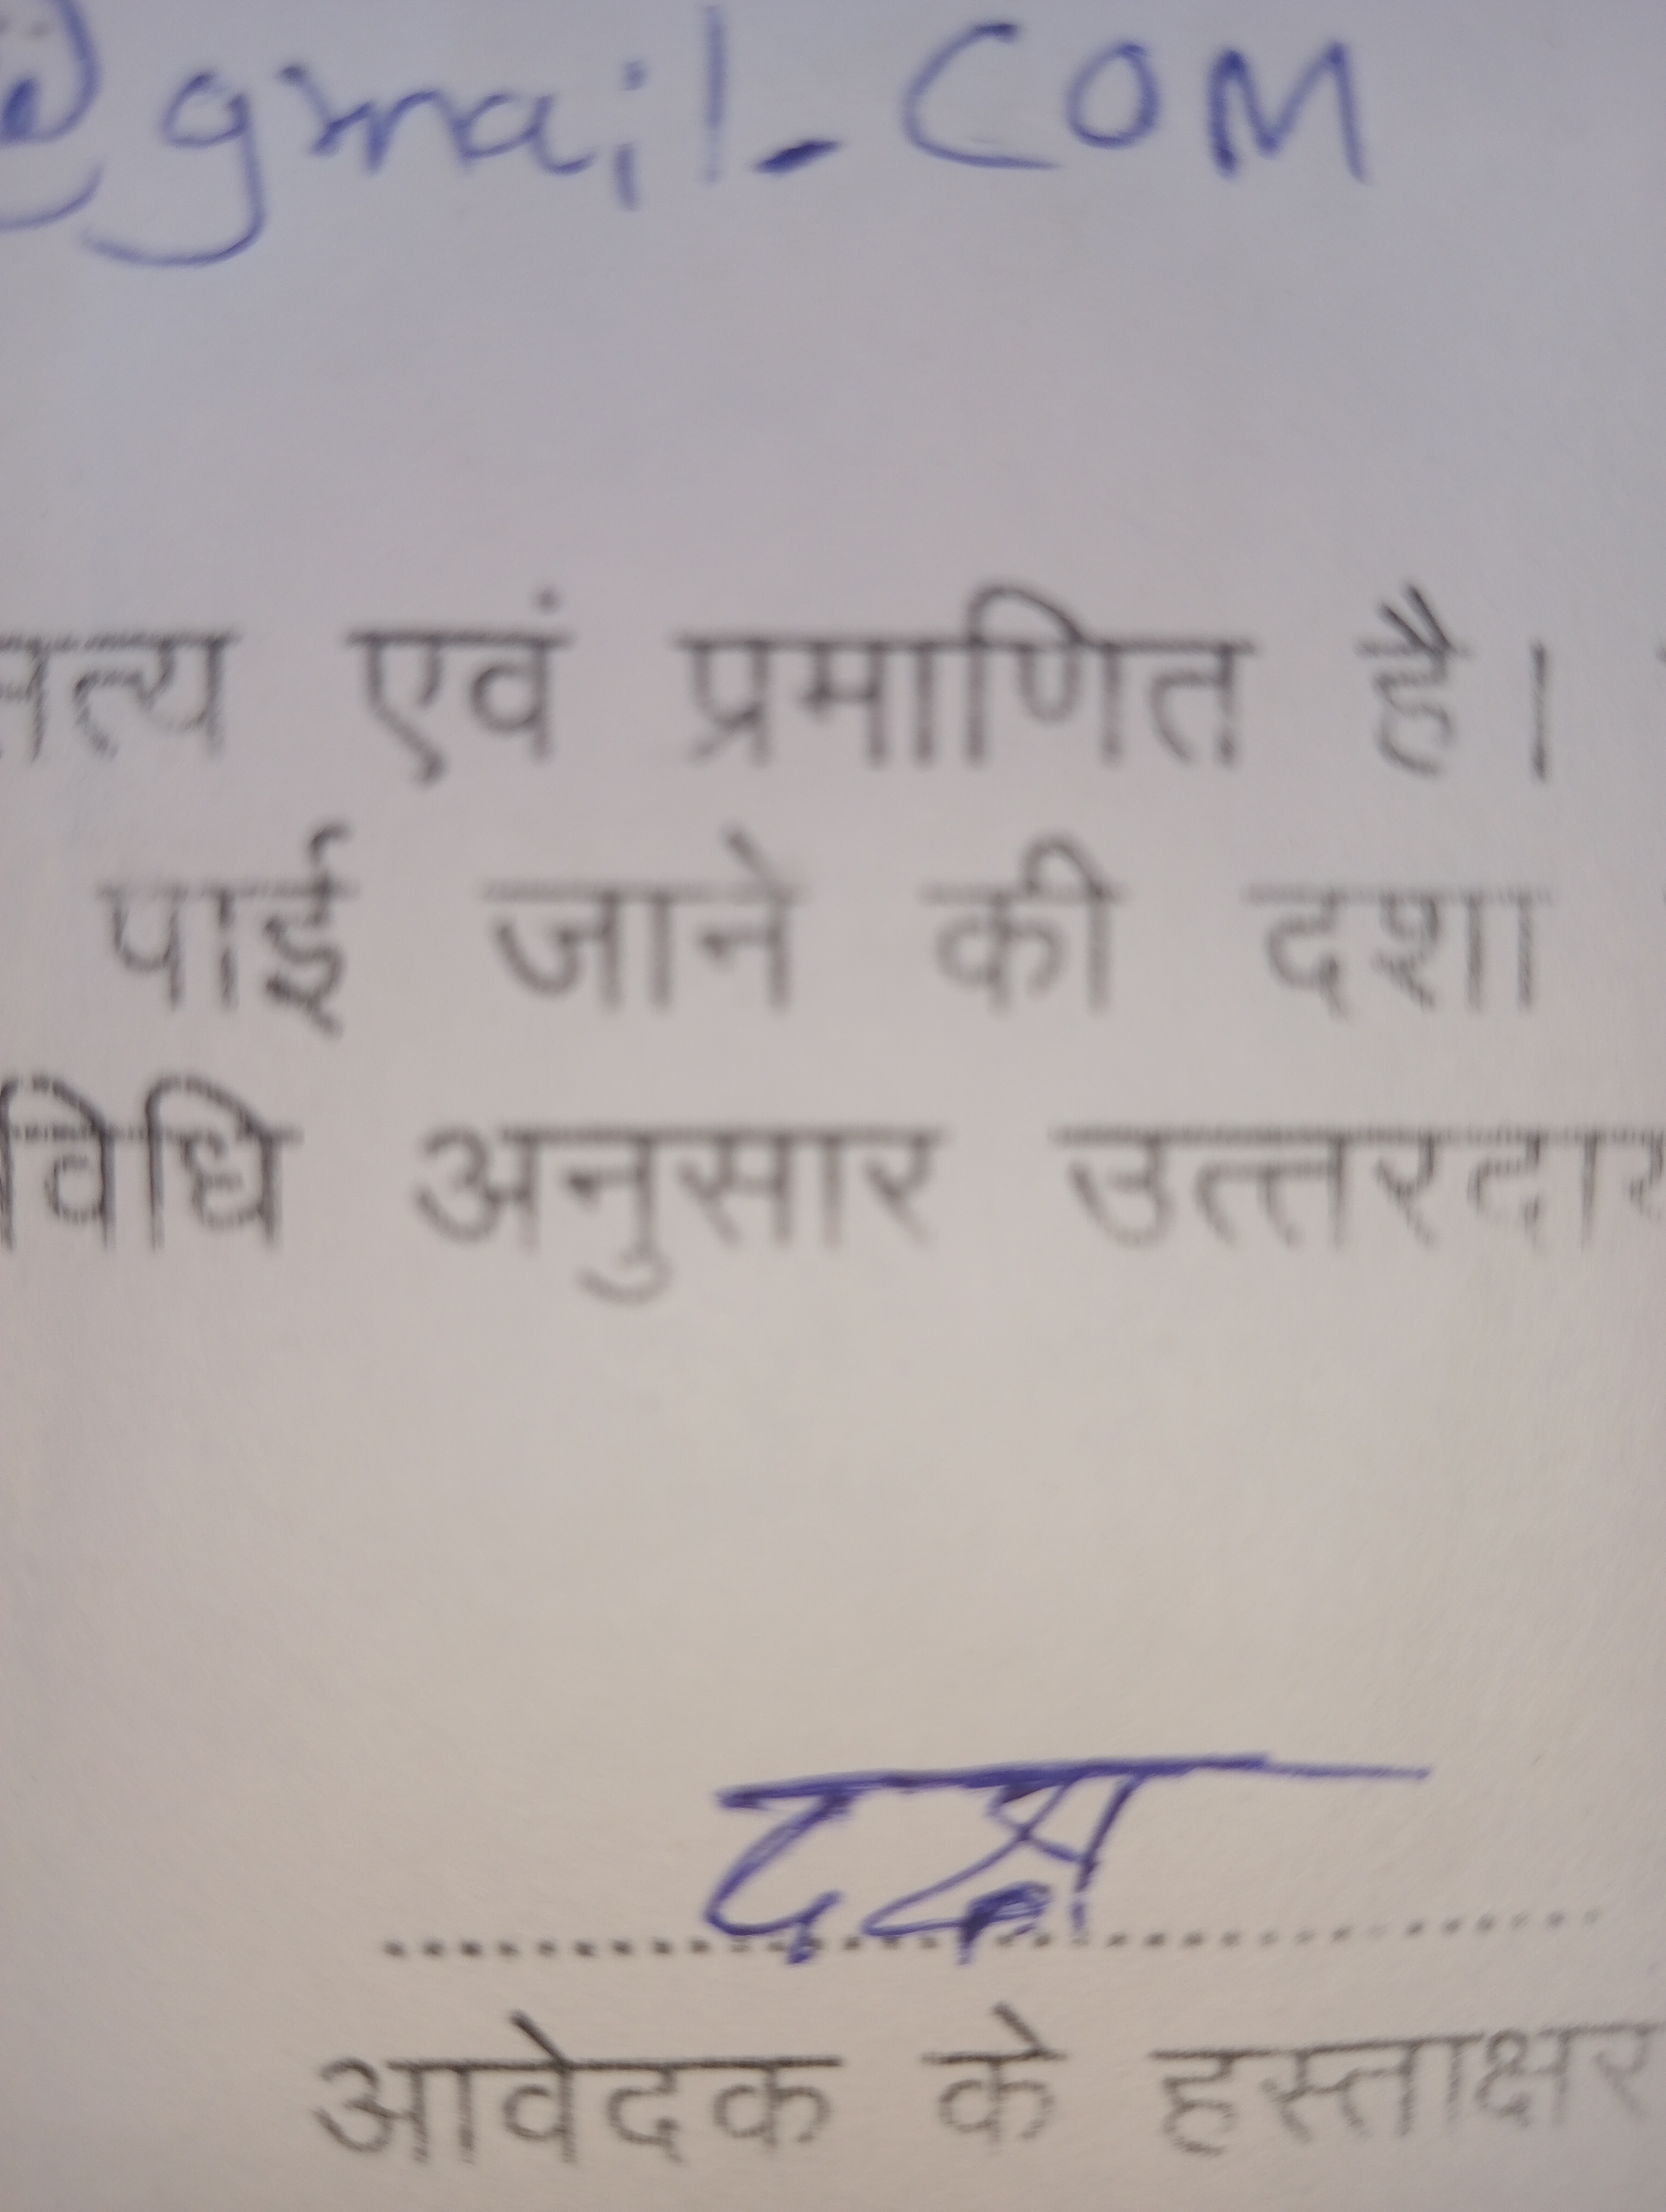 @gmail.COM
सत्य एवं प्रमाणित है।
पाई जाने की दशा
विधि अनुसार उत्तरदाय
दक्ष
आवेदक के हस्ताक्षर